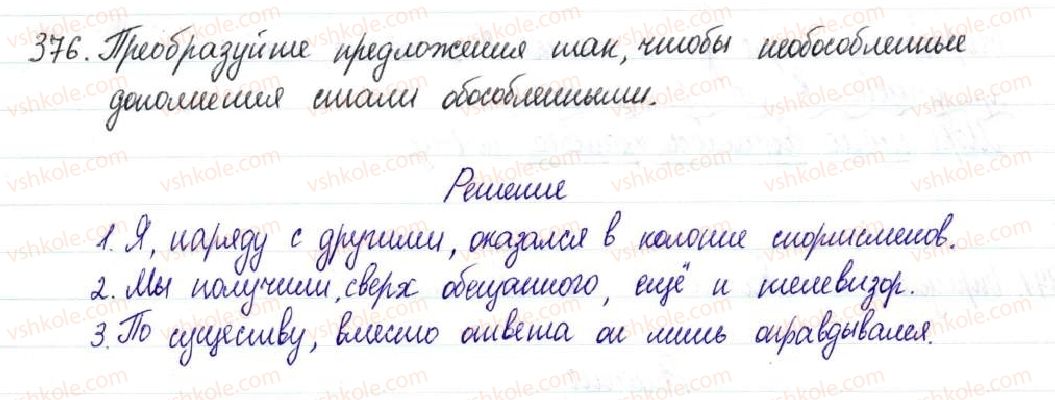 376. Преобразуйте предложения так, чтобы необособленные
дополнения стали обособленными.
Решение
1. Я, наряду с другими, оказался в колонне спортсменов.
2. Мы получили, сверх обещанного, ещё и телевизор.
3. По существу, вместо ответа он лишь оправдывался.